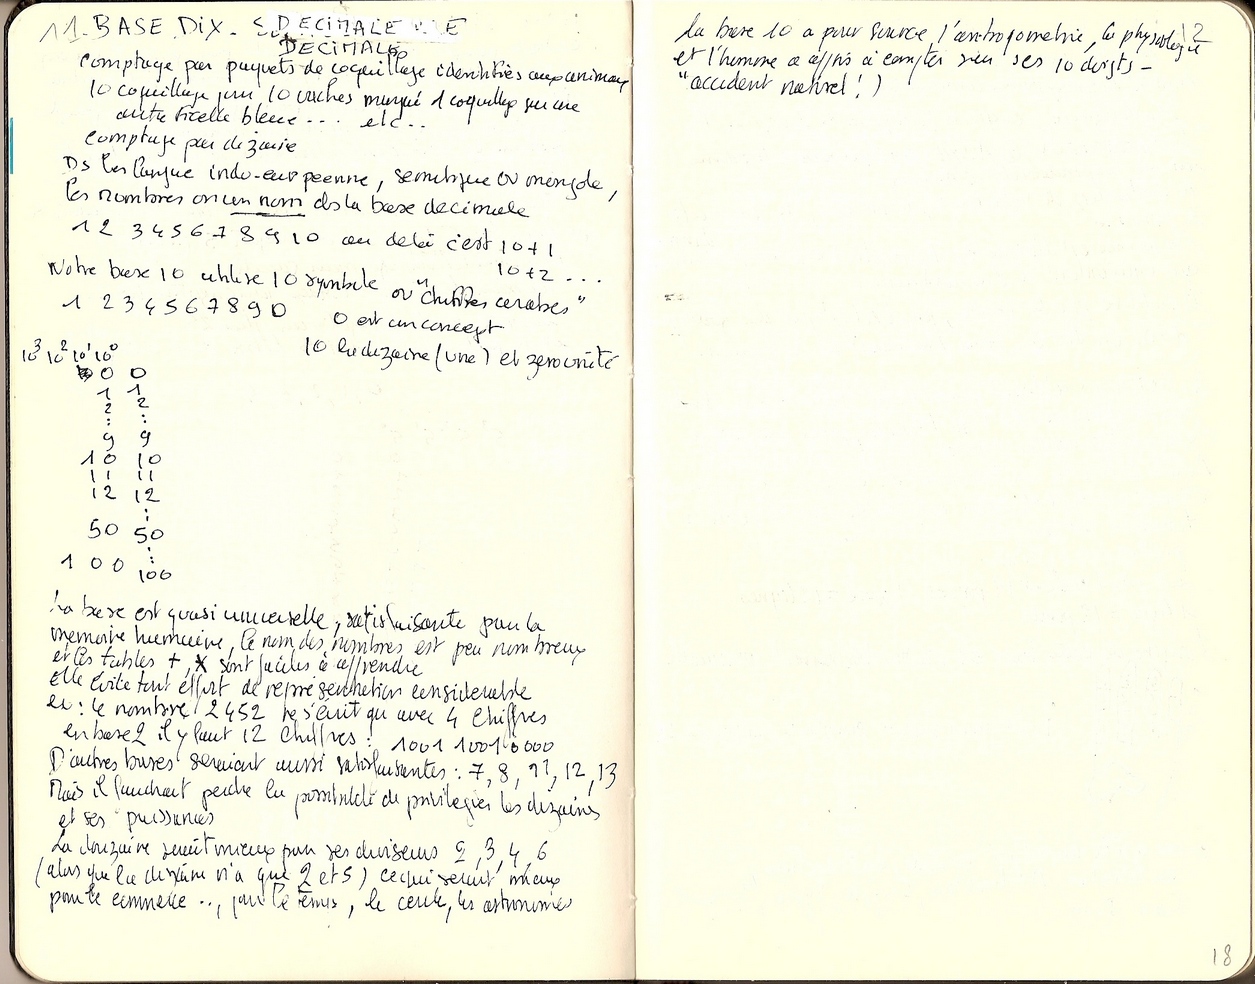 11. BASE DIX. DECIMALE
DECIMALE
comptage par paquets de coquillage identifiés aux animaux
10 coquillage pour 10 vaches marqué 1 coquillage sur une
autre ficelle bleue... etc..
comptage par dizaine
Ds les langue indo-europeenne, semitique ou mongole,
les nombres on un nom ds la base decimale
1 2 3 4 5 6 7 8 9 10 au delà c'est 10+1
10+2 ...
Notre base 10 utilise 10 symbole ou "chiffres arabes"
1 2 3 4 5 6 7 8 9 0
0 est un concept
10 la dizaine (une) et zero unité
10³ 10² 10¹ 10⁰
0 0
1 1
2 2
: :
9 9
10 10
11 11
12 12
:
50 50
:
1 0 0 100
La base est quasi universelle, satisfaisante pour la
memoire humaine, le nom des nombres est peu nombreux
et les tables +, x sont faciles à apprendre
elle évite tout effort de representation considerable
ex: le nombre 2452 ne s'écrit qu'avec 4 chiffres
en base 2 il y faut 12 chiffres: 1001 1001 0000
D'autres bases seraient aussi satisfaisantes: 7, 8, 11, 12, 13
Mais il faudrait perdre la possibilité de privilegier les dizaines
et ses puissances
La douzaine serait mieux par ses diviseurs 2, 3, 4, 6
(alors que la dizaine n'a que 2 et 5) ce qui serait mieux
pour le commerce .., pour le temps, le cercle, les astronomes
12
la base 10 a pour source l'antropometrie, la physiologie
et l'homme a appris à compter sur ses 10 doigts -
"accident naturel!)
18